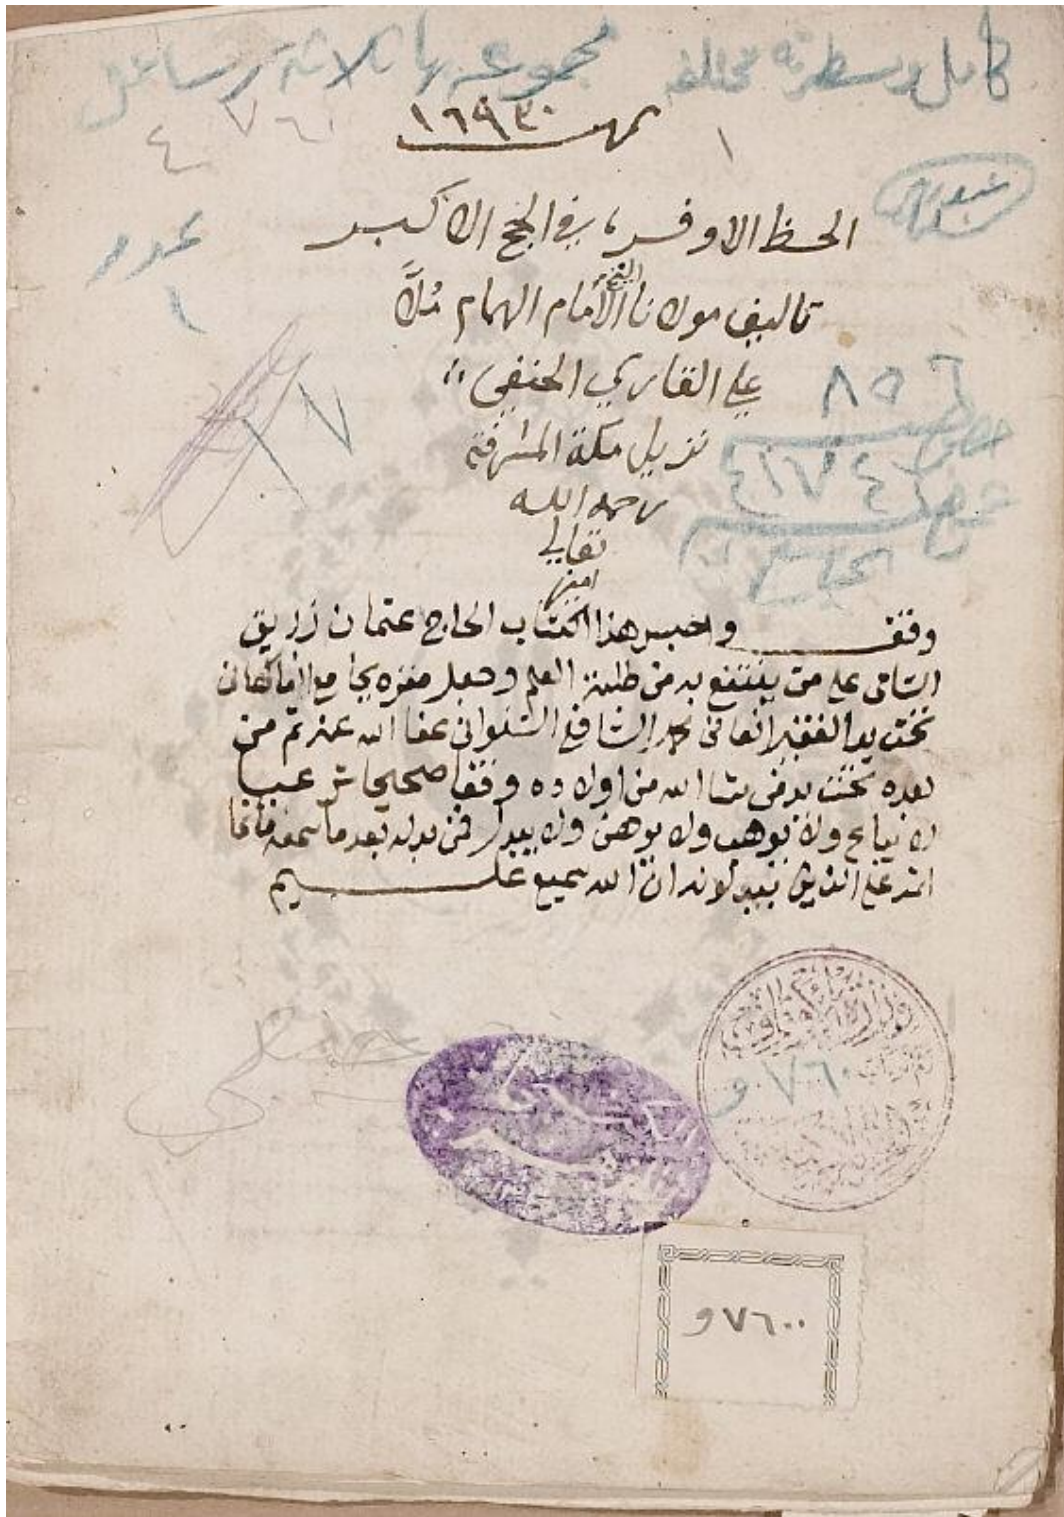 كامل ومسطرته مختلفة مجموعة بها ثلاثة رسائل
نمرة ١٦٩٣٠
١
٧٦٠
٤
الحظ الاوفر، في الحج الاكبر
تاليف مولانا الشيخ الأمام الهمام مُلاَّ
علي القاري الحنفي
نزيل مكة المشرفة
رحمه الله
تعالى
امين
٨٥٦
خصوصية
٤١٧٤٦
٧
وقف واحبس هذا الكتاب الحاج عثمان زريق
الشامى على من ينتفع به من طلبة العلم وجعل مقره بجامع
تحت يد الفقير الشافعى الشلوانى عفا الله عنه ثم من
بعده تحت يد من شا الله من اولاده وقفا صحيحا شرعيا
لا يباع ولا يوهب ولا يرهن ولا يبدل فمن بدله بعد ما سمعه فانما
اثمه على الذين يبدلونه ان الله سميع عليم
٧٦٠٠ و
٧٦٠٠ و